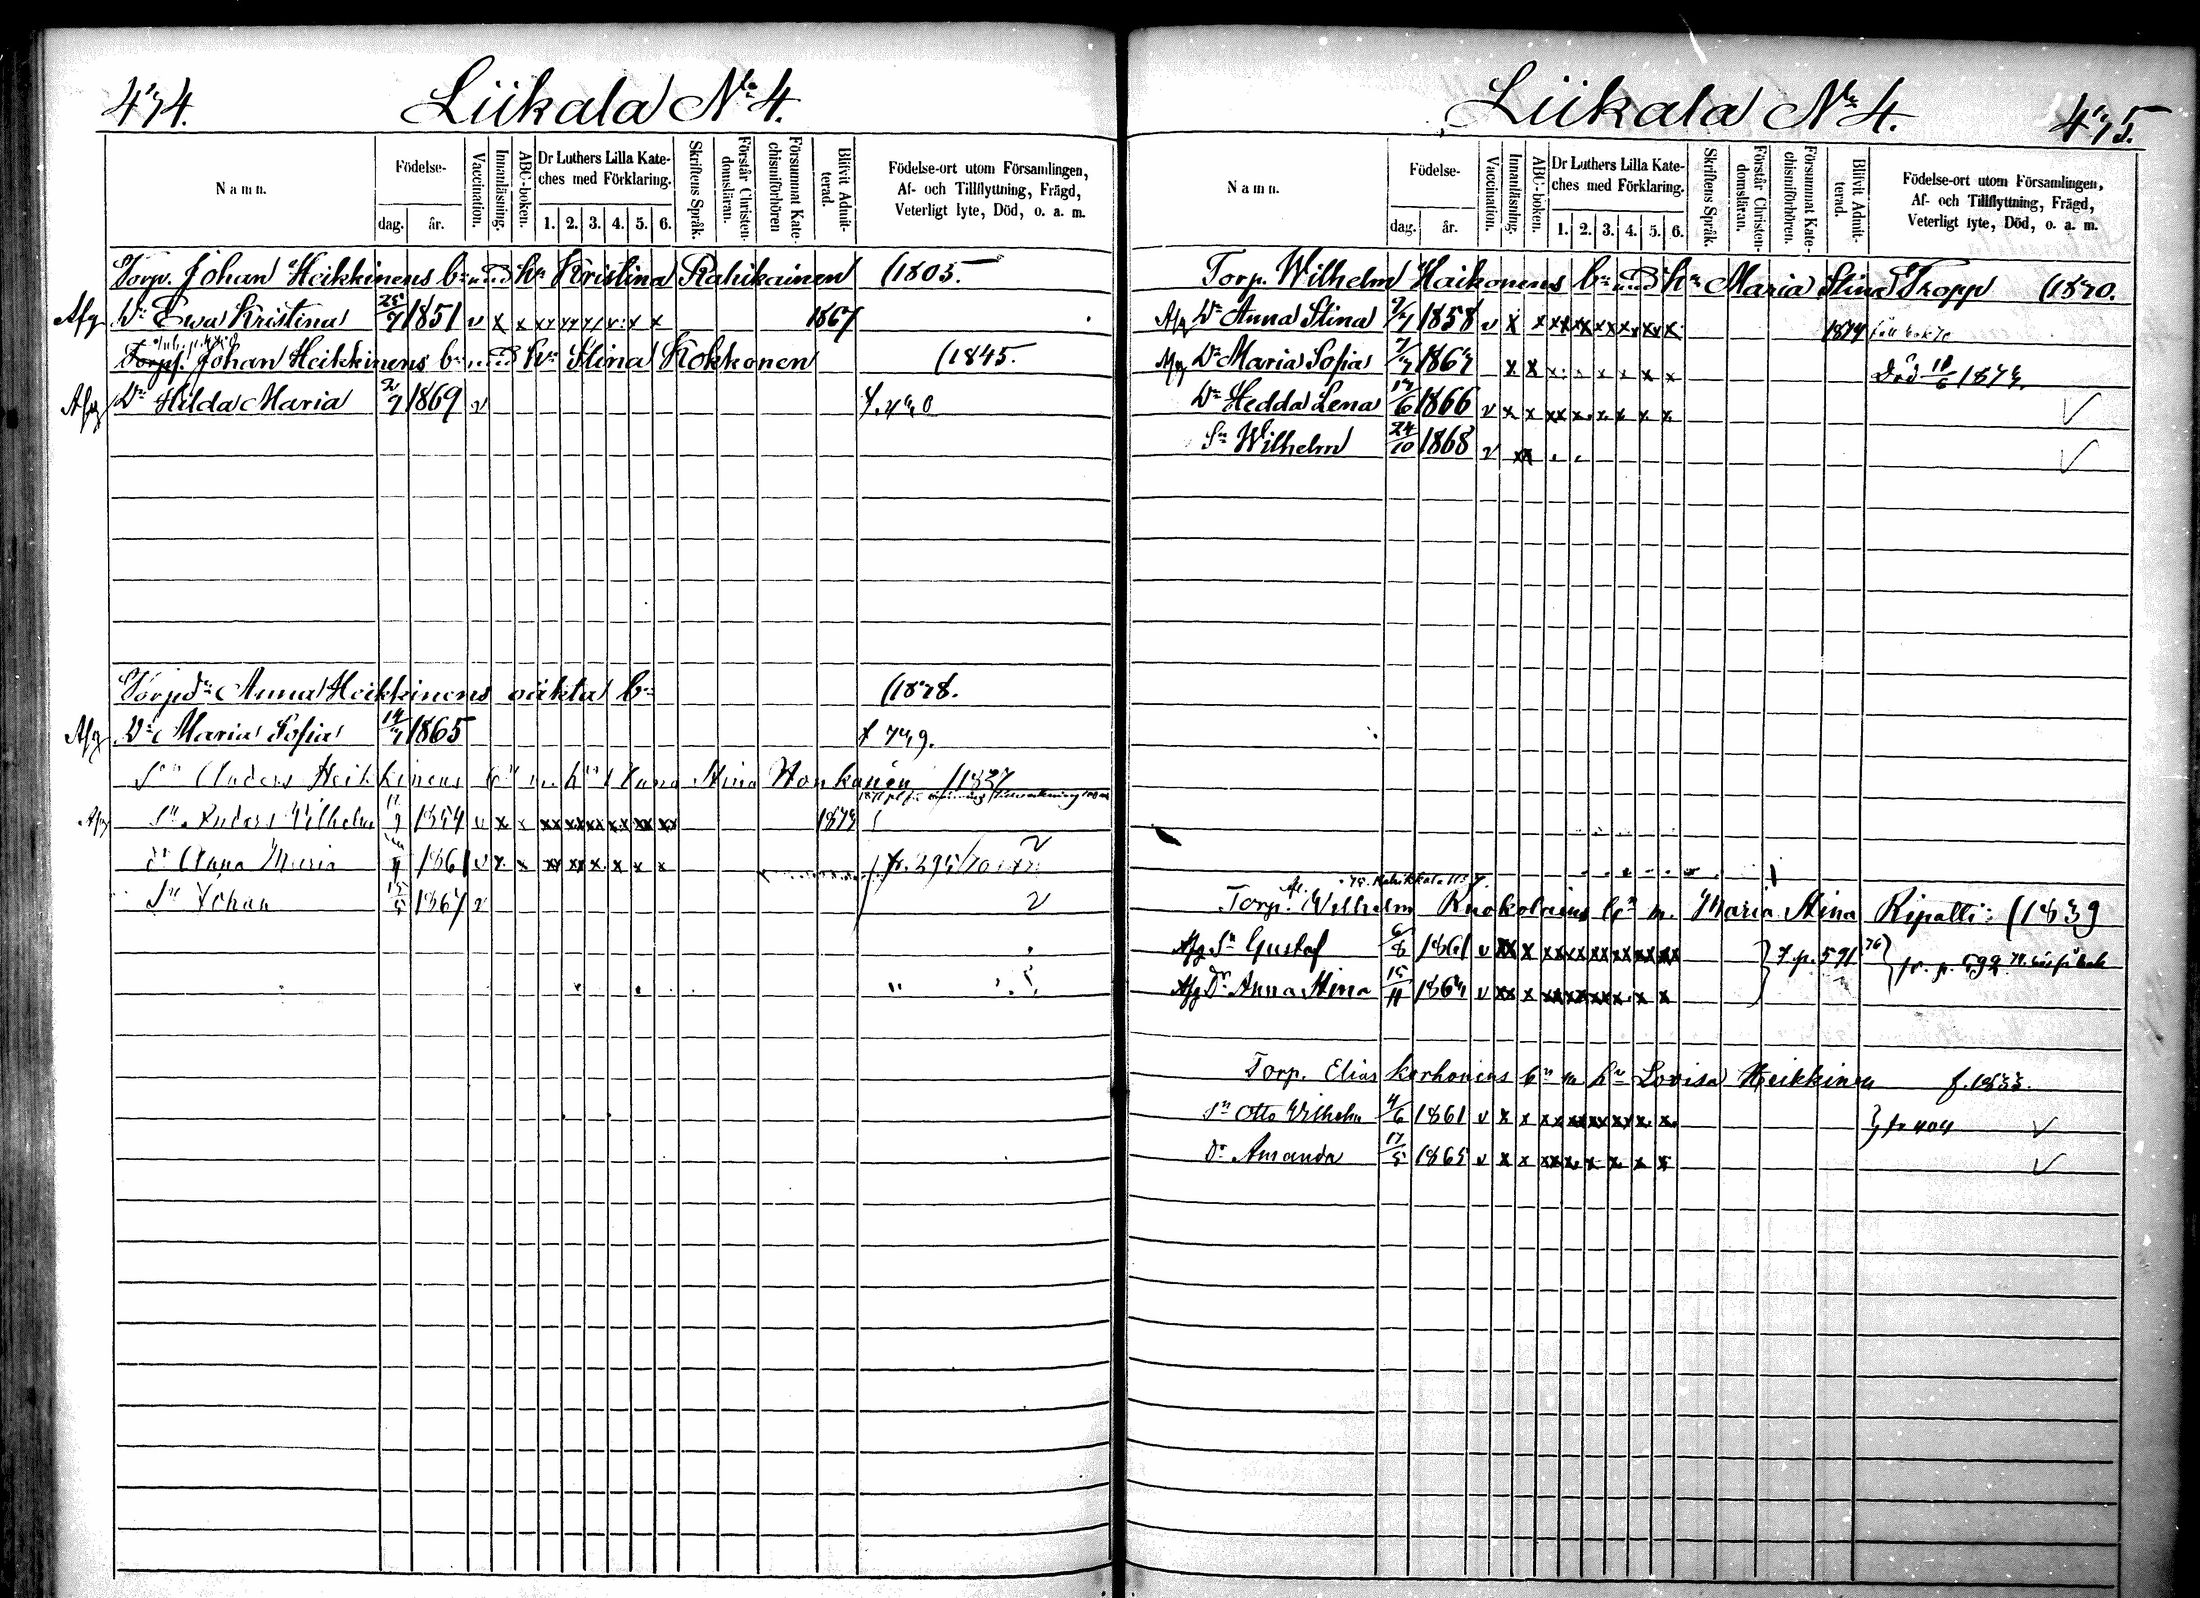 474.
Liikala No 4.
Namn.
Födelse-
dag.
år.
Vaccination.
Innanläsning.
ABC-boken.
Dr Luthers Lilla Kate-
ches med Förklaring.
1. 2. 3. 4. 5. 6.
Skriftens Språk.
Förstår Christen-
domsläran.
Försummat Kate-
chismiförhören
Blifvit Admit-
terad.
Födelse-ort utom Församlingen,
Af- och Tillflyttning, Frägd,
Veterligt lyte, Död, o. a. m.
Torp. Johan Heikkinens bn und hu Kristina Rahikainen (1805.
Afg Dr Ewa Kristina 25/7 1851 v x x 1867
Torpf. Johan Heikkinens bn und hu Stina Kokkonen (1845.
Afg Dr Hilda Maria 2/7 1869 v
Torpdr Anna Heikkinens oäkta bn (1828.
Afg Dr Maria Sofia 1865
Sn Anders Heikkinens bn m. hu Anna Stina Honkanen (1837
Afg Sn Anders Wilhelm 1854 v x x xx xx xx xx xx xx 1873
dr Anna Maria 1861 v x x xx xx x x x x
Sn Johan 1867 v
Liikala No 4.
475.
Namn.
Födelse-
dag.
år.
Vaccination.
Innanläsning.
ABC-boken.
Dr Luthers Lilla Kate-
ches med Förklaring.
1. 2. 3. 4. 5. 6.
Skriftens Språk.
Förstår Christen-
domsläran.
Försummat Kate-
chismiförhören.
Blifvit Admit-
terad.
Födelse-ort utom Församlingen,
Af- och Tillflyttning, Frägd,
Veterligt lyte, Död, o. a. m.
Torp. Wilhelm Haikonens bn und hu Maria Stina Tropp
Afg Dr Anna Stina 1858 v x x xx xx xx xx xx x 1874
Afg Dr Maria Sofia x x Död 18/6
Dr Hedda Lena 1866 v x x xx x x x x x
Sn Wilhelm 24/10 1868 v
Torp. Wilhelm bn m. Maria Stina Ripatti (1839
Afg Sn Gustaf 6/8 1861 v xx x xx xx xx xx xx xx f. p. 591
Afg Dr Anna Stina 15/11 v xx x xx xx xx x x x
Torp. Elias Korhonens bn m hu Lovisa Heikkinen f. 1833.
Sn Otto Vilhelm 4/6 1861 v x x xx xx xx xx x x fr 404
Dr Amanda 17/5 1865 v x x xx x x x x x